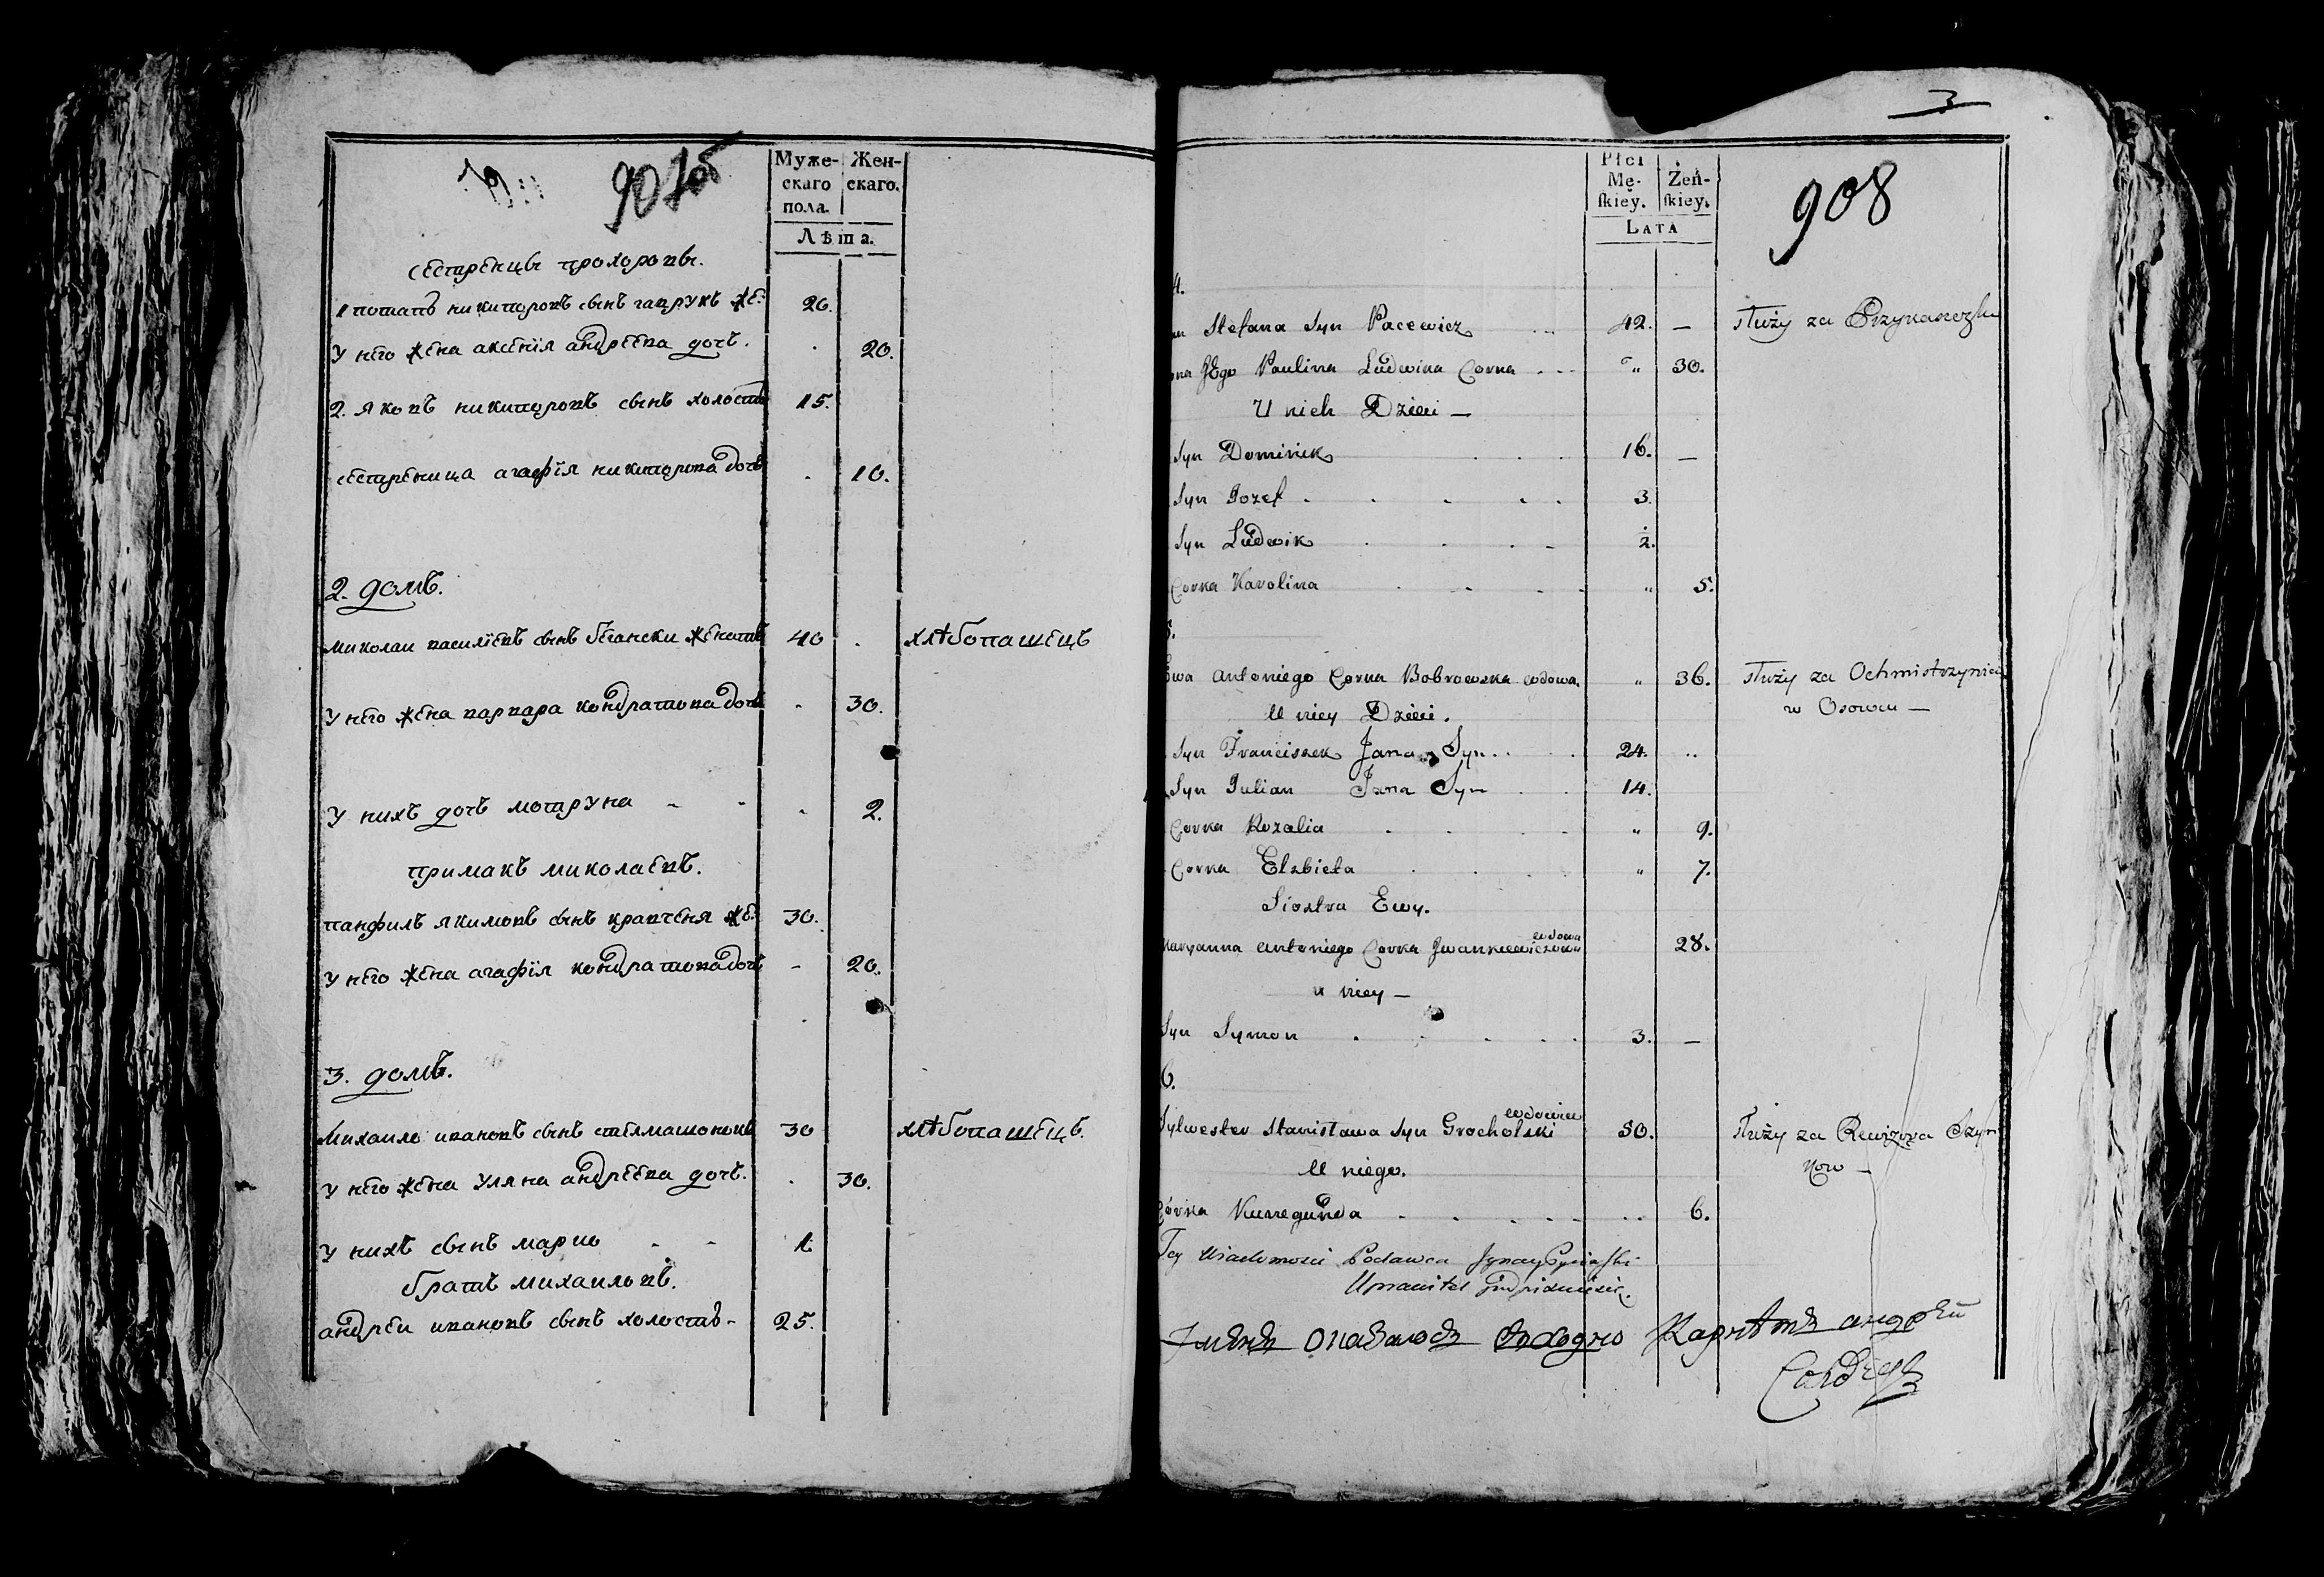 907об
Муже-
скаго
пола.
Жен-
скаго.
Лѣта.
сестренцы прохоровы.
1 потапъ никиторовъ сынъ гаврукъ же: 26.
У него жена аксенія андреева дочь. 20.
2. яковъ никиторовъ сынъ холостъ 15.
сестреница агафія никиторова дочь 10.
2. домъ.
миколаи василіевъ сынъ бегански женатъ 40 хлѣбопашецъ
У него жена варвара кондратова дочь 30.
У нихъ дочь мотруна 2.
примакъ миколаевъ.
панфилъ якимовъ сынъ кравченя же: 30.
У него жена агафія кондратова дочь 20.
3. домъ.
Михаило ивановъ сынъ стелмашонокъ 30 хлѣбопашецъ.
У него жена уляна андреева дочь. 30.
У нихъ сынъ марко 1.
братъ михаиловъ.
андреи ивановъ сынъ холостъ 25.
3
Płci
Mę-
ſkiey.
Żeń-
ſkiey.
LATA
908
4.
Stefana Syn Pacewicz 42. — służy za
Jego Paulina Ludwika Corka " 30.
U nich Dzieci —
Syn Dominik 16. —
Syn Jozef 3.
Syn Ludwik 2.
Corka Karolina " 5.
5.
Ewa Antoniego Corka Bobrowska wdowa. " 36. służy za Ochmistrzynią
w Osowcu —
U niey Dzieci.
Syn Franciszek Jana Syn 24. ..
Syn Julian Jana Syn 14.
Corka Rozalia " 9.
Corka Elzbieta " 7.
Siostra Ewy.
Maryanna Antoniego Corka Jwankiewiczowa wdowa 28.
u niey —
Syn Symon 3. —
6.
Sylwester Stanisława Syn Grocholski wdowiec 50. służy za Rewizora
U niego.
Córka Kunegunda 6.
Tey Wiadomości Podawca
андрей